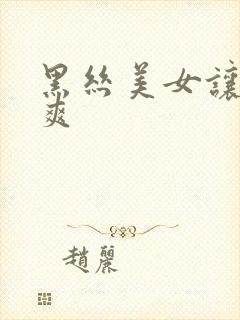 黑絲美女讓
爽
趙麗